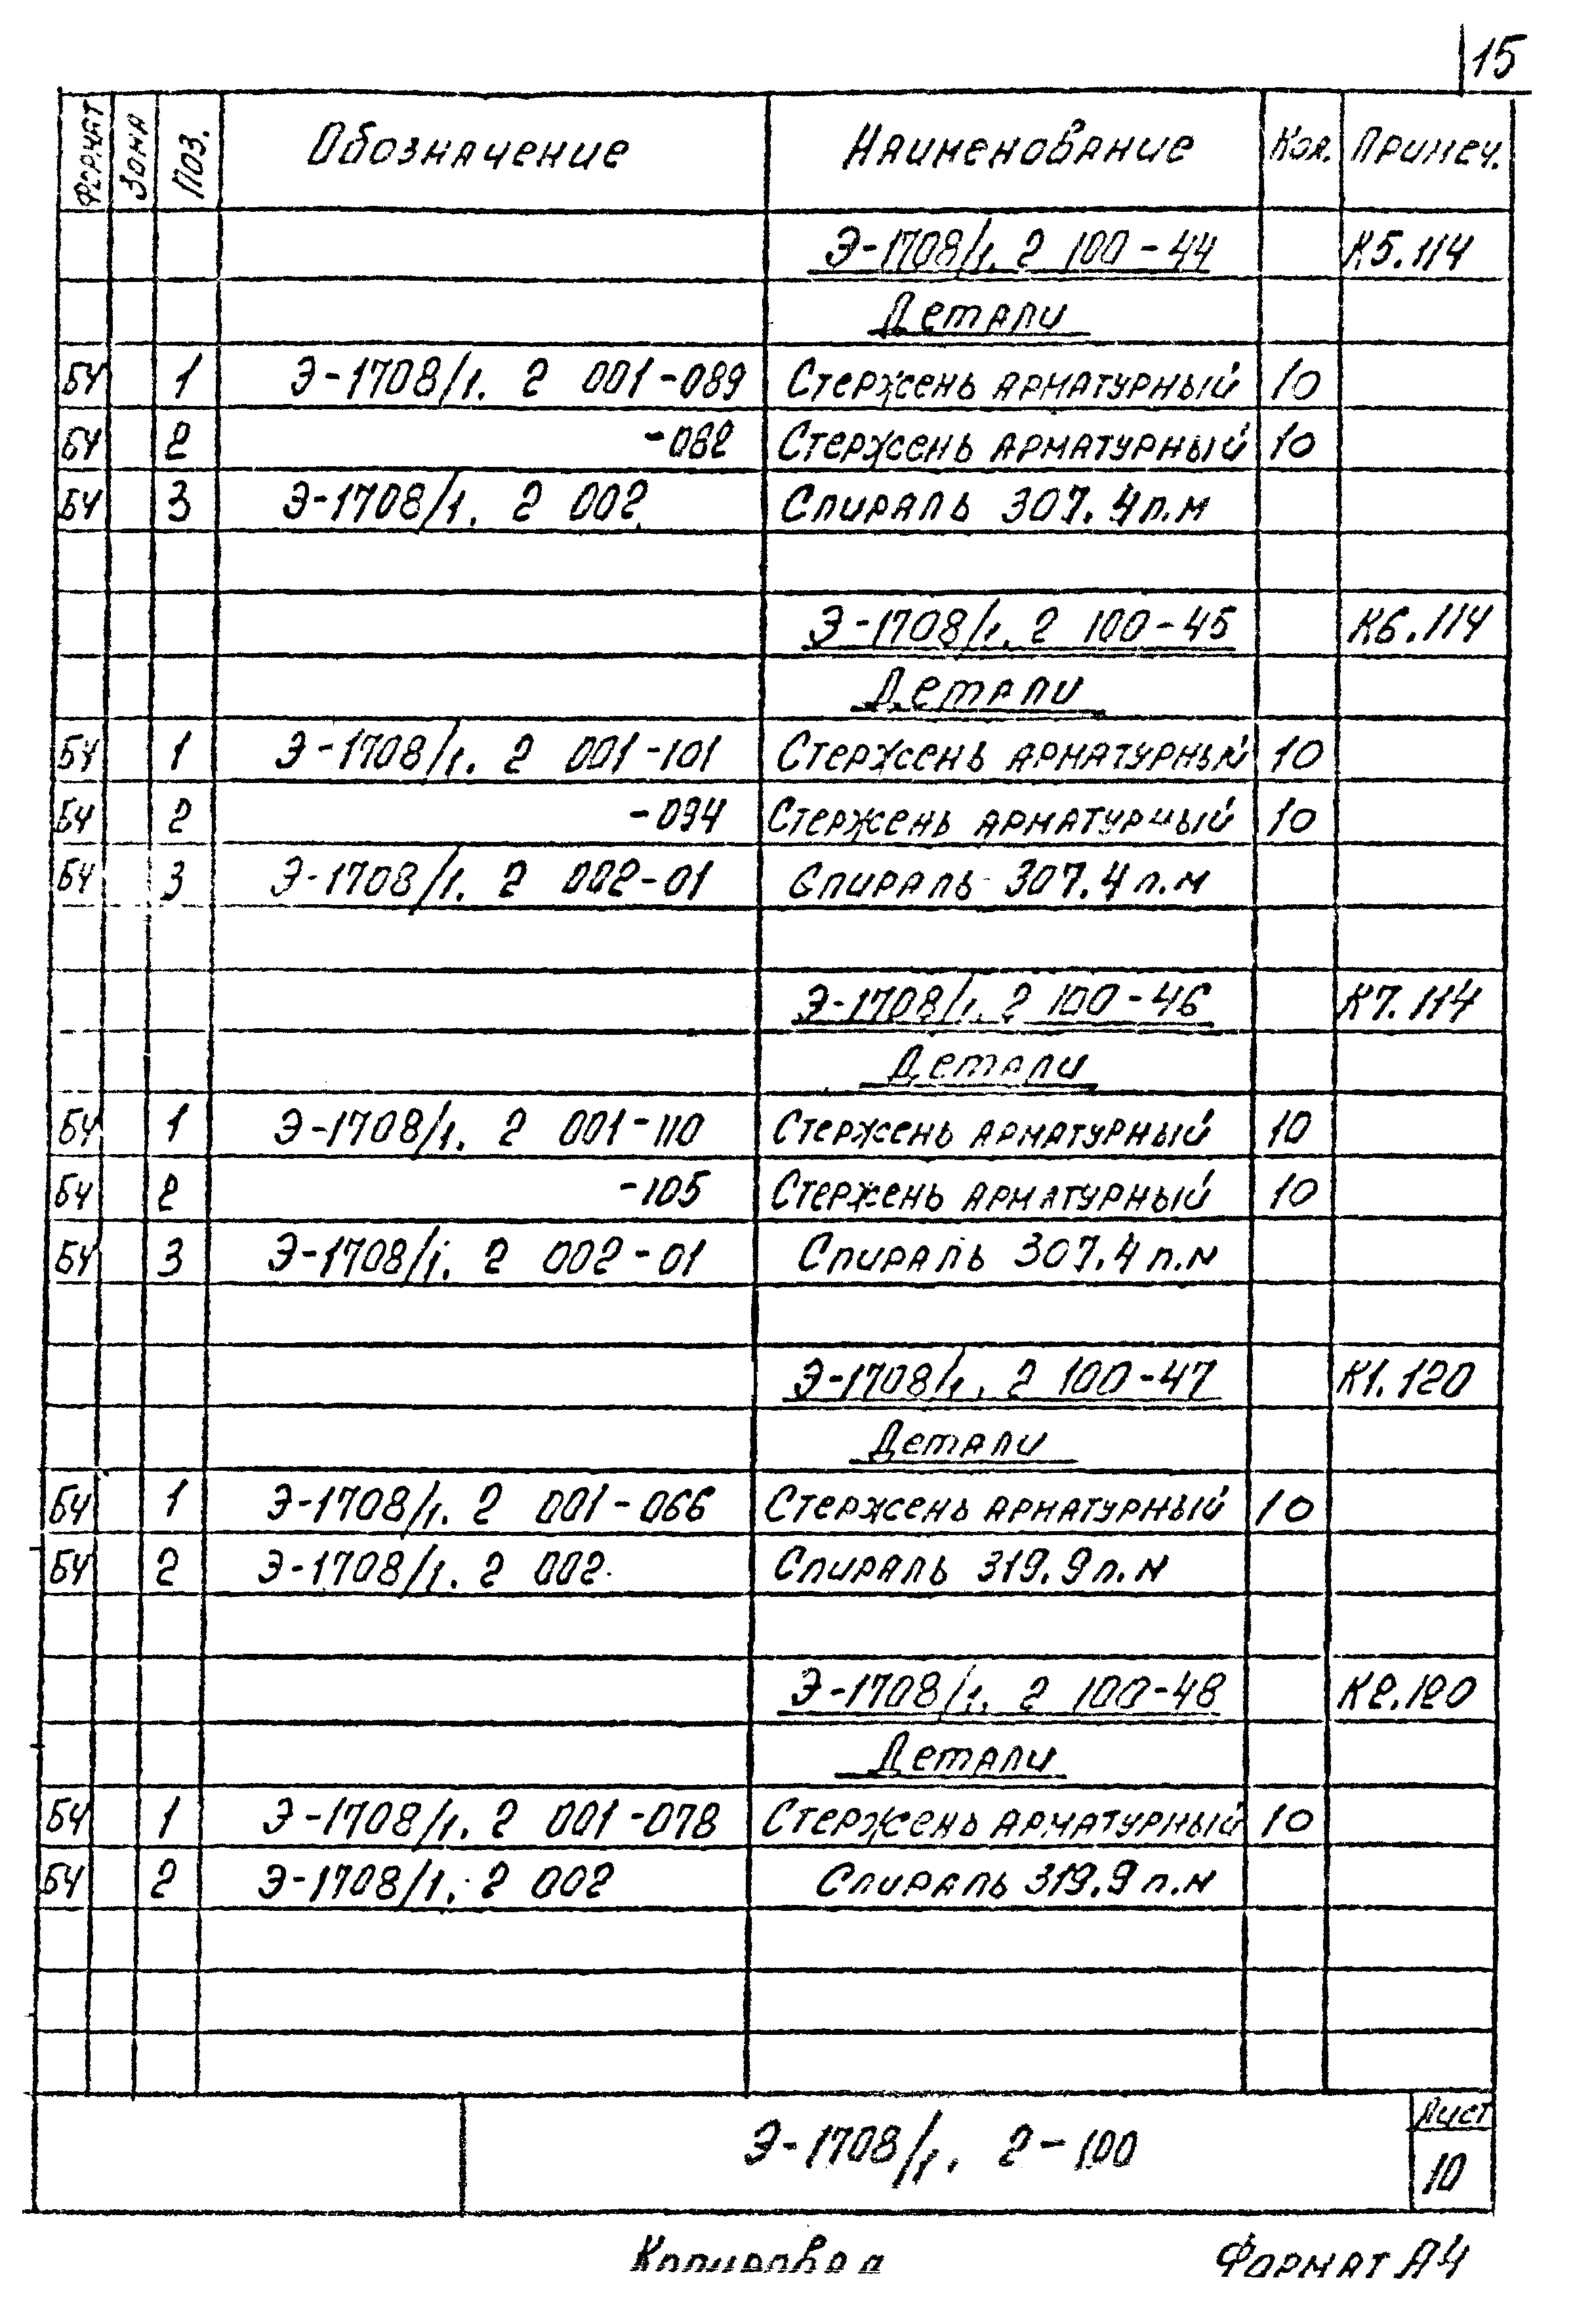 15
Формат Зона Поз. Обозначение Наименование Кол. Примеч.
Э-1708/1. 2 100-44 К5.114
Детали
БЧ 1 Э-1708/1. 2 001-089 Стержень арматурный 10
БЧ 2 -082 Стержень арматурный 10
БЧ 3 Э-1708/1. 2 002 Спираль 307.4 п.м
Э-1708/1. 2 100-45 К6.114
Детали
БЧ 1 Э-1708/1. 2 001-101 Стержень арматурный 10
БЧ 2 -094 Стержень арматурный 10
БЧ 3 Э-1708/1. 2 002-01 Спираль 307.4 п.м
Э-1708/1. 2 100-46 К7.114
Детали
БЧ 1 Э-1708/1. 2 001-110 Стержень арматурный 10
БЧ 2 -105 Стержень арматурный 10
БЧ 3 Э-1708/1. 2 002-01 Спираль 307.4 п.м
Э-1708/1. 2 100-47 К1.120
Детали
БЧ 1 Э-1708/1. 2 001-066 Стержень арматурный 10
БЧ 2 Э-1708/1. 2 002 Спираль 319.9 п.м
Э-1708/1. 2 100-48 К2.120
Детали
БЧ 1 Э-1708/1. 2 001-078 Стержень арматурный 10
БЧ 2 Э-1708/1. 2 002 Спираль 319.9 п.м
Э-1708/1. 2-100
Лист
10
Копировал Формат А4